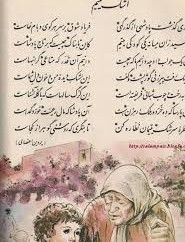 اشک یتیم
روزی گذشت پادشهی از گذرگهی
فریاد شوق بر سر هر کوی و بام خاست
پرسید زان میانه یکی کودک یتیم
کاین تابناک چیست که بر تاج پادشاست
آن یک جواب داد چه دانیم ما که چیست
دانیم آن قدر که متاعی گرانبهاست
نزدیک رفت پیرزنی گوژپشت و گفت
این اشک دیدهٔ من و خون دل شماست
ما را به رخت و چوب شبانی فریفته است
این گرگ سالهاست که با گله آشناست
آن پادشا که مال رعیت خورد گداست
بر قطرهٔ سرشک یتیمان نظاره کن
تا بنگری که روشنی گوهر از کجاست
(پروین اعتصامی)